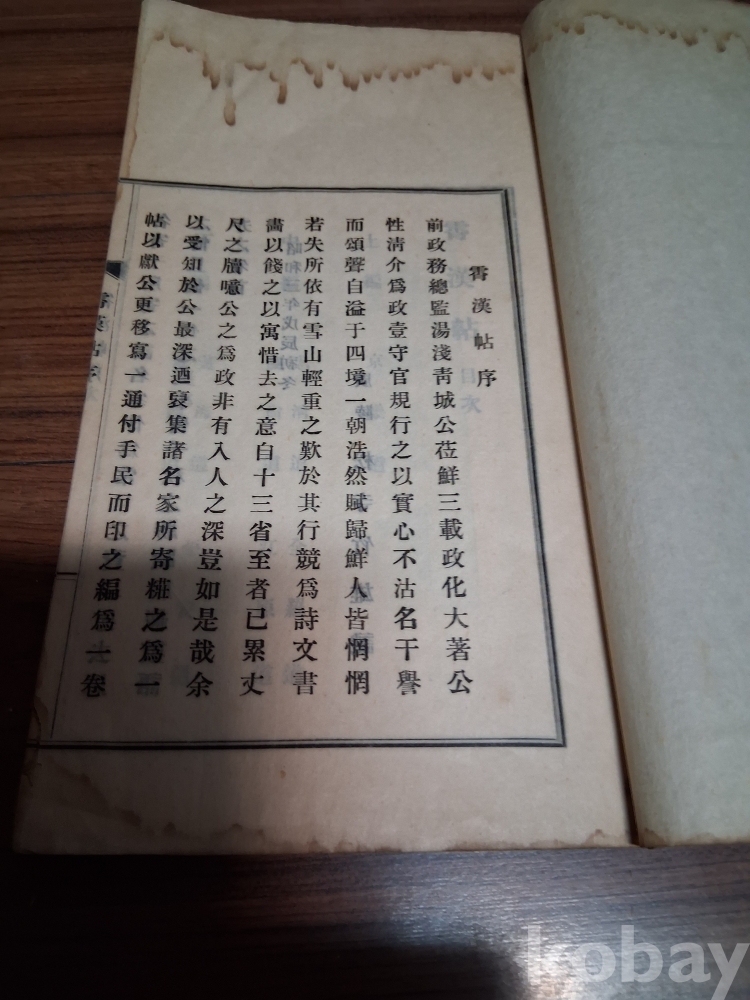 霱漢帖序
前政務總監湯淺靑城公莅鮮三載政化大著公
性淸介爲政壹守官規行之以實心不沽名干譽
而頌聲自溢于四境一朝浩然賦歸鮮人皆惘惘
若失所依有雪山輕重之歎於其行競爲詩文書
畵以餞之以寓惜去之意自十三省至者已累丈
尺之牘噫公之爲政非有入人之深豈如是哉余
以受知於公最深迺裒集諸名家所寄糚之爲一
帖以獻公更移寫一通付手民而印之編爲一卷
漢帖序
昭和三年戊辰初冬
kobay